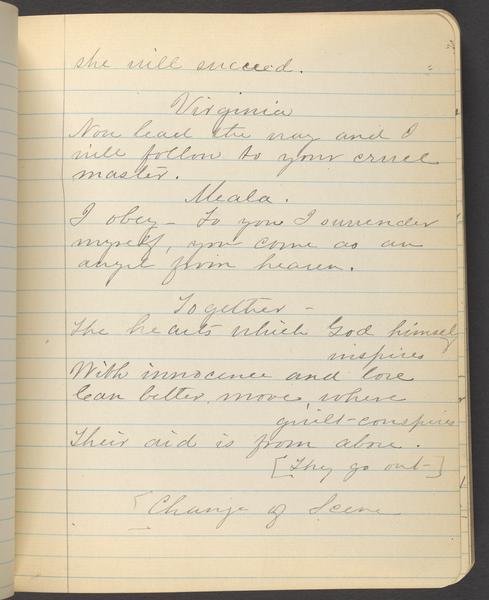 she will succeed.
Virginia
Now lead the way and I
will follow to your cruel
master.
Meala.
I obey - To you I surrender
myself, you come as an
angel from heaven.
Together -
The hearts which God himself
inspires
With innocence and love
Can better move where
guilt conspires
Their aid is from above.
[They go out-]
[Change of Scene